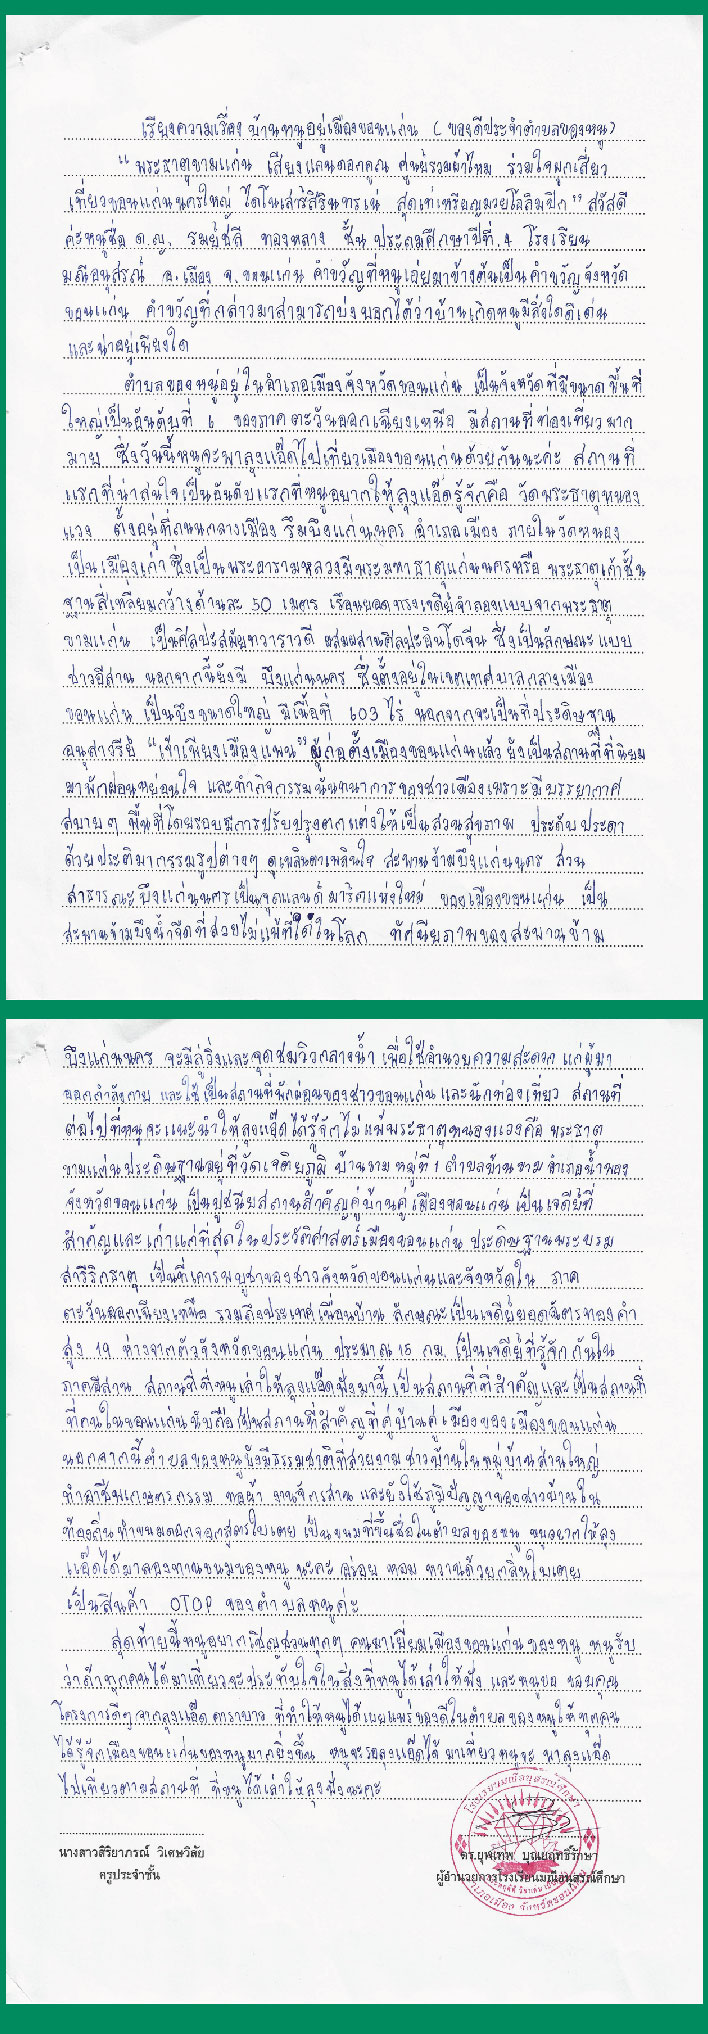 เรียงความเรื่อง บ้านหนูอยู่เมืองขอนแก่น ( ของดีประจำตำบลของหนู)
" พระธาตุขามแก่น เสียงแคนดอกคูณ ศูนย์รวมผ้าไหม ร่วมใจผูกเสี่ยว
เที่ยวขอนแก่นนครใหญ่ ไดโนเสาร์สิรินธรเน่ สุดเท่เหรียญมวยโอลิมปิก" สวัสดี
ค่ะหนูชื่อ ด.ญ. ทองหลาง ชั้น ประถมศึกษาปีที่ 4 โรงเรียน
มณีอนุสรณ์ อ.เมือง จ.ขอนแก่น คำขวัญที่หนูเอ่ยมาข้างต้นเป็นคำขวัญจังหวัด
ขอนแก่น คำขวัญที่กล่าวมาสามารถบ่งบอกได้ว่าบ้านเกิดหนูมีสิ่งใดดีเด่น
และน่าอยู่เพียงใด
ตำบลของหนูอยู่ในอำเภอเมืองจังหวัดขอนแก่น เป็นจังหวัดที่มีขนาดพื้นที่
ใหญ่เป็นอันดับที่ 6 ของภาคตะวันออกเฉียงเหนือ มีสถานที่ท่องเที่ยวมาก
มาย ซึ่งวันนี้หนูจะพาลุงแอ๊ดไปเที่ยวเมืองขอนแก่นด้วยกันนะค่ะ สถานที่
แรกที่น่าสนใจเป็นอันดับแรกที่หนูอยากให้ลุงแอ๊ดรู้จักคือ วัดพระธาตุหนอง
แวง ตั้งอยู่ที่ถนนกลางเมือง ริมบึงแก่นนคร อำเภอเมือง ภายในวัดหนอง
เป็นเมืองเก่า ซึ่งเป็นพระอารามหลวงมีพระมหาธาตุแก่นนครหรือ พระธาตุเก้าชั้น
ฐานสี่เหลี่ยมกว้างด้านละ 50 เมตร เรือนยอดทรงเจดีย์จำลองแบบจากพระธาตุ
ขามแก่น เป็นศิลปะสมัยทวาราวดี ผสมผสานศิลปะอินโดจีน ซึ่งเป็นลักษณะแบบ
ชาวอีสาน นอกจากนี้ยังมี บึงแก่นนคร ซึ่งตั้งอยู่ในเขตเทศบาลกลางเมือง
ขอนแก่น เป็นบึงขนาดใหญ่ มีเนื้อที่ 603 ไร่ นอกจากจะเป็นที่ประดิษฐาน
อนุสาวรีย์ "เจ้าเพียงเมืองแพน" ผู้ก่อตั้งเมืองขอนแก่นแล้ว ยังเป็นสถานที่ที่นิยม
มาพักผ่อนหย่อนใจ และทำกิจกรรมนันทนาการของชาวเมืองเพราะมีบรรยากาศ
สบายๆ พื้นที่โดยรอบมีการปรับปรุงตกแต่งให้เป็นสวนสุขภาพ ประดับประดา
ด้วยประติมากรรมรูปต่างๆ ดูเพลินตาเพลินใจ สะพานข้ามบึงแก่นนคร สวน
สาธารณะบึงแก่นนครเป็นจุดแลนด์มาร์คแห่งใหม่ ของเมืองขอนแก่น เป็น
สะพานข้ามบึงน้ำจืดที่สวยไม่แพ้ที่ใดในโลก ทัศนียภาพของสะพานข้าม
บึงแก่นนคร จะมีลู่วิ่งและจุดชมวิวกลางน้ำ เพื่อใช้อำนวยความสะดวก แก่ผู้มา
ออกกำลังกาย และใช้เป็นสถานที่พักผ่อนของชาวขอนแก่นและนักท่องเที่ยว สถานที่
ต่อไปที่หนูจะแนะนำให้ลุงแอ๊ดได้รู้จักไม่แพ้พระธาตุหนองแวงคือ พระธาตุ
ขามแก่นประดิษฐานอยู่ที่วัดเจติยภูมิ บ้านขาม หมู่ที่ 1 ตำบลบ้านขาม อำเภอน้ำพอง
จังหวัดขอนแก่น เป็นปูชนียสถานสำคัญคู่บ้านคู่เมืองขอนแก่น เป็นเจดีย์ที่
สำคัญและเก่าแก่ที่สุดในประวัติศาสตร์เมืองขอนแก่น ประดิษฐานพระบรม
สารีริกธาตุ เป็นที่เคารพบูชาของชาวจังหวัดขอนแก่นและจังหวัดใน ภาค
ตะวันออกเฉียงเหนือ รวมถึงประเทศเพื่อนบ้าน ลักษณะเป็นเจดีย์ยอดฉัตรทองคำ
สูง 19 ห่างจากตัวจังหวัดขอนแก่น ประมาณ 15 กม. เป็นเจดีย์ที่รู้จักกันใน
ภาคอีสาน สถานที่ที่หนูเล่าให้ลุงแอ๊ดฟังมานี้ เป็นสถานที่ที่สำคัญและเป็นสถานที่
ที่คนในขอนแก่นนับถือเป็นสถานที่สำคัญที่คู่บ้านคู่เมืองของเมืองขอนแก่น
นอกจากนี้ตำบลของหนูยังมีธรรมชาติที่สวยงาม ชาวบ้านในหมู่บ้านส่วนใหญ่
ทำอาชีพเกษตรกรรม ทอผ้า งานจักรสาน และยังใช้ภูมิปัญญาของชาวบ้านใน
ท้องถิ่นทำขนมดอกจอกสูตรใบเตย เป็นขนมที่ขึ้นชื่อในตำบลของหนู หนูอยากให้ลุง
แอ๊ดได้มาลองทานขนมของหนู นะคะ อร่อย หอม หวานด้วยกลิ่นใบเตย
เป็นสินค้า OTOP ของตำบลหนูค่ะ
สุดท้ายนี้หนูอยากเชิญชวนทุกๆ คนมาเยี่ยมเมืองขอนแก่นของหนู หนูรับ
ว่าถ้าทุกคนได้มาเที่ยวจะประทับใจในสิ่งที่หนูได้เล่าให้ฟัง และหนูขอ ขอบคุณ
โครงการดีๆ จากลุงแอ๊ด คาราบาว ที่ทำให้หนูได้เผยแพร่ของดีในตำบลของหนูให้ทุกคน
ได้รู้จักเมืองขอนแก่นของหนูมากยิ่งขึ้น หนูจะรอลุงแอ๊ดได้มาเที่ยวหนูจะพาลุงแอ๊ด
ไปเที่ยวตามสถานที่ ที่หนูได้เล่าให้ลุงฟังนะคะ
นางสาวสิริยาภรณ์ วิเศษวิลัย
ครูประจำชั้น
ดร.ยุพเทพ บุณยฤทธิ์รักษา
ผู้อำนวยการโรงเรียนมณีอนุสรณ์ศึกษา